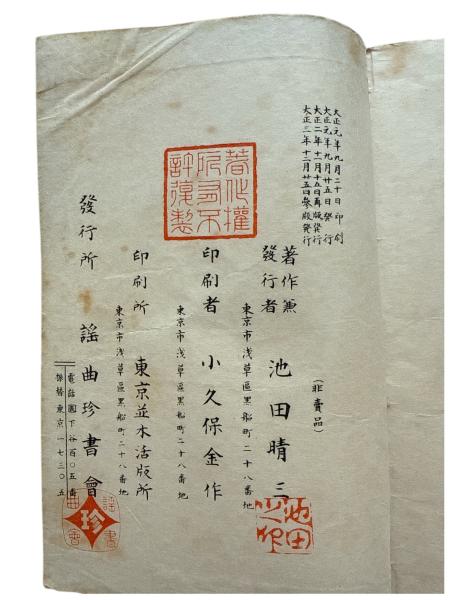 大正元年九月二十日印刷
大正元年九月廿五日發行
大正二年十一月十五日再版發行
大正三年十二月廿五日參版發行
(非賣品)
著作兼
發行者
池田晴三
東京市淺草區黑船町二十八番地
印刷者 小久保金作
東京市淺草區黑船町二十八番地
印刷所 東京並木活版所
東京市淺草區黑船町二十八番地
發行所 謡曲珍書會
電話園下谷百〇五番
振替東京一七三〇五
著作權
所有不
許復製
池田
之作
謡書
珍
曲會